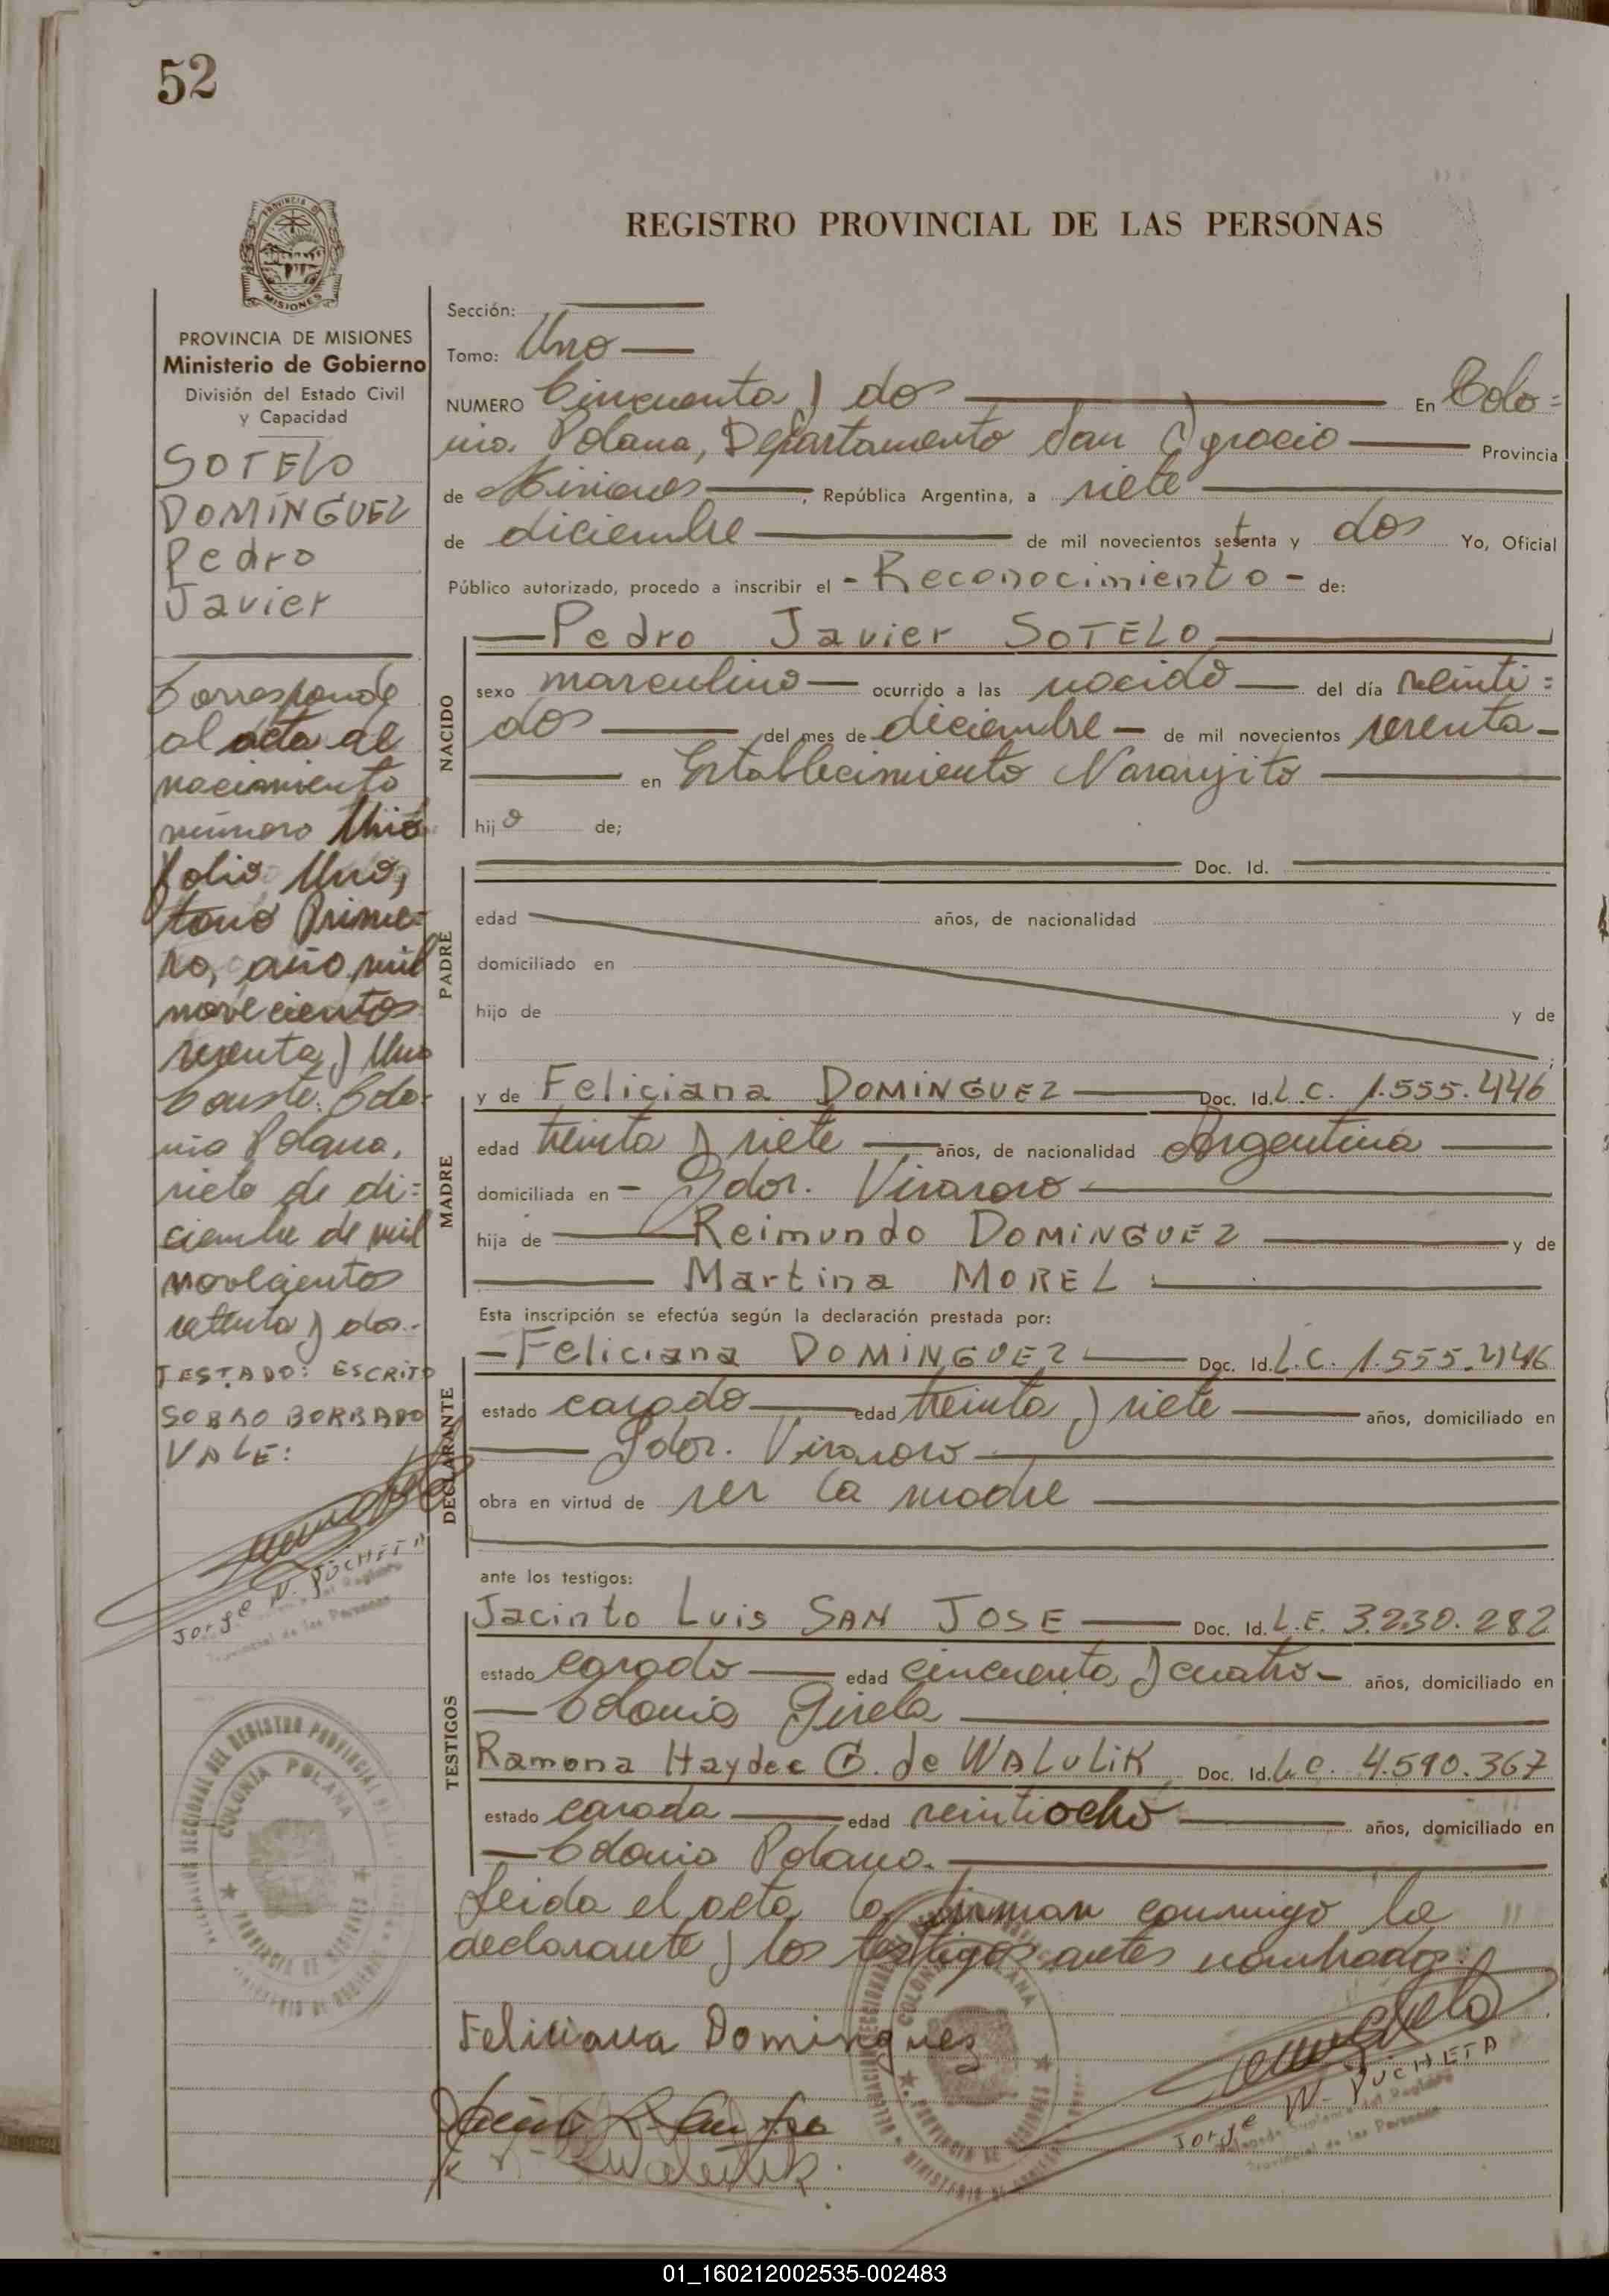 52
PROVINCIA DE MISIONES
MISIONES
PROVINCIA DE MISIONES
Ministerio de Gobierno
División del Estado Civil
y Capacidad
SOTELO
DOMINGUEZ
Pedro
Javier
Corresponde
al acta de
nacimiento
número Uno
folio Uno,
tomo Prime=
ro, año mil
novecientos
sesenta y Uno
Conste. Colo-
nia Polana,
siete de di=
ciembre de mil
novecientos
setenta y dos.-
TESTADO: ESCRITO
SOBRO BORRADO
VALE:
Jorge W. PUCHETA
Provincial de las Personas
DELEGACION SECCIONAL DEL REGISTRO PROVINCIAL DE LAS
COLONIA POLANA
PROVINCIA DE MISIONES
MINISTERIO DE GOBIERNO
REGISTRO PROVINCIAL DE LAS PERSONAS
Sección:
Tomo: Uno
NUMERO Cincuenta y dos En Colo=
nia Polana, Departamento San Ignacio Provincia
de Misiones, República Argentina, a siete
de diciembre de mil novecientos setenta y dos Yo, Oficial
Público autorizado, procedo a inscribir el - Reconocimiento - de:
Pedro Javier SOTELO
NACIDO
sexo masculino ocurrido a las nacido del día veinti=
dos del mes de diciembre de mil novecientos sesenta
en Establecimiento Naranjito
hijo de;
PADRE
Doc. Id.
edad años, de nacionalidad
domiciliado en
hijo de y de
;
MADRE
y de Feliciana DOMINGUEZ Doc. Id. L.C. 1.555.446
edad treinta y siete años, de nacionalidad Argentina
domiciliada en - Gdor. Virasoro
hija de Reimundo DOMINGUEZ y de
Martina MOREL
Esta inscripción se efectúa según la declaración prestada por:
DECLARANTE
Feliciana DOMINGUEZ Doc. Id. L.C. 1.555.446
estado casado edad treinta y siete años, domiciliado en
Gdor. Virasoro
obra en virtud de ser la madre
ante los testigos:
TESTIGOS
Jacinto Luis SAN JOSE Doc. Id. L.E. 3.230.282
estado casado edad cincuenta y cuatro - años, domiciliado en
Colonia Gisela
Ramona Haydee G. de WALULIK Doc. Id. L.C. 4.590.367
estado casada edad veintiocho años, domiciliado en
Colonia Polana.
Leida el acta la firman conmigo la
declarante y los testigos antes nombrados.
Feliciana Dominguez
COLONIA POLANA
PROVINCIA DE MISIONES
MINISTERIO DE GOBIERNO
Jorge W. PUCHETA
Provincial de las Personas
01_160212002535-002483